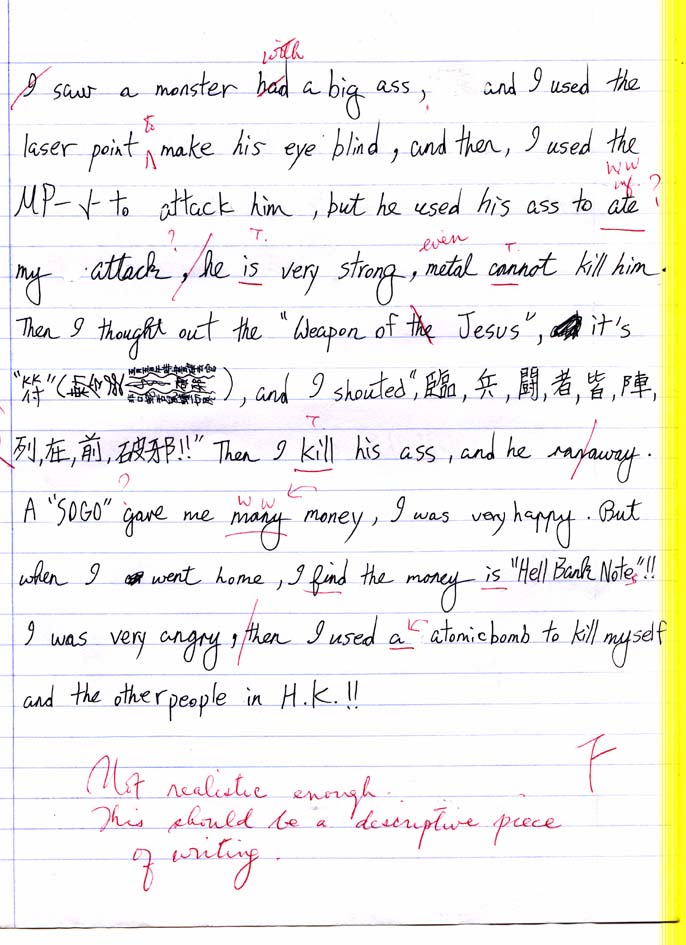 with
I saw a monster had a big ass, and I used the
to
laser point make his eye blind, and then, I used the
WW
inf. ?
MP-5 to attack him, but he used his ass to ate
? T. even T.
my attack, he is very strong, metal cannot kill him.
Then I thought out the "Weapon of the Jesus", it's
"符" ( ), and I shouted", 臨, 兵, 鬪, 者, 皆, 陣,
T.
列, 在, 前, 破邪!!" Then I kill his ass, and he ran away.
? WW
A "SOGO" gave me many money, I was very happy. But
when I went home, I find the money is "Hell Bank Notes"!!
I was very angry, then I used a atomic bomb to kill myself
and the other people in H.K.!!
F
Not realistic enough.
This should be a descriptive piece
of writing.